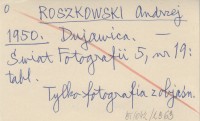 o
ROSZKOWSKI Andrzej
1950. Dujawica. —
Świat Fotografii 5, nr 19:
tabl.
Tylko fotografia z objaśn.